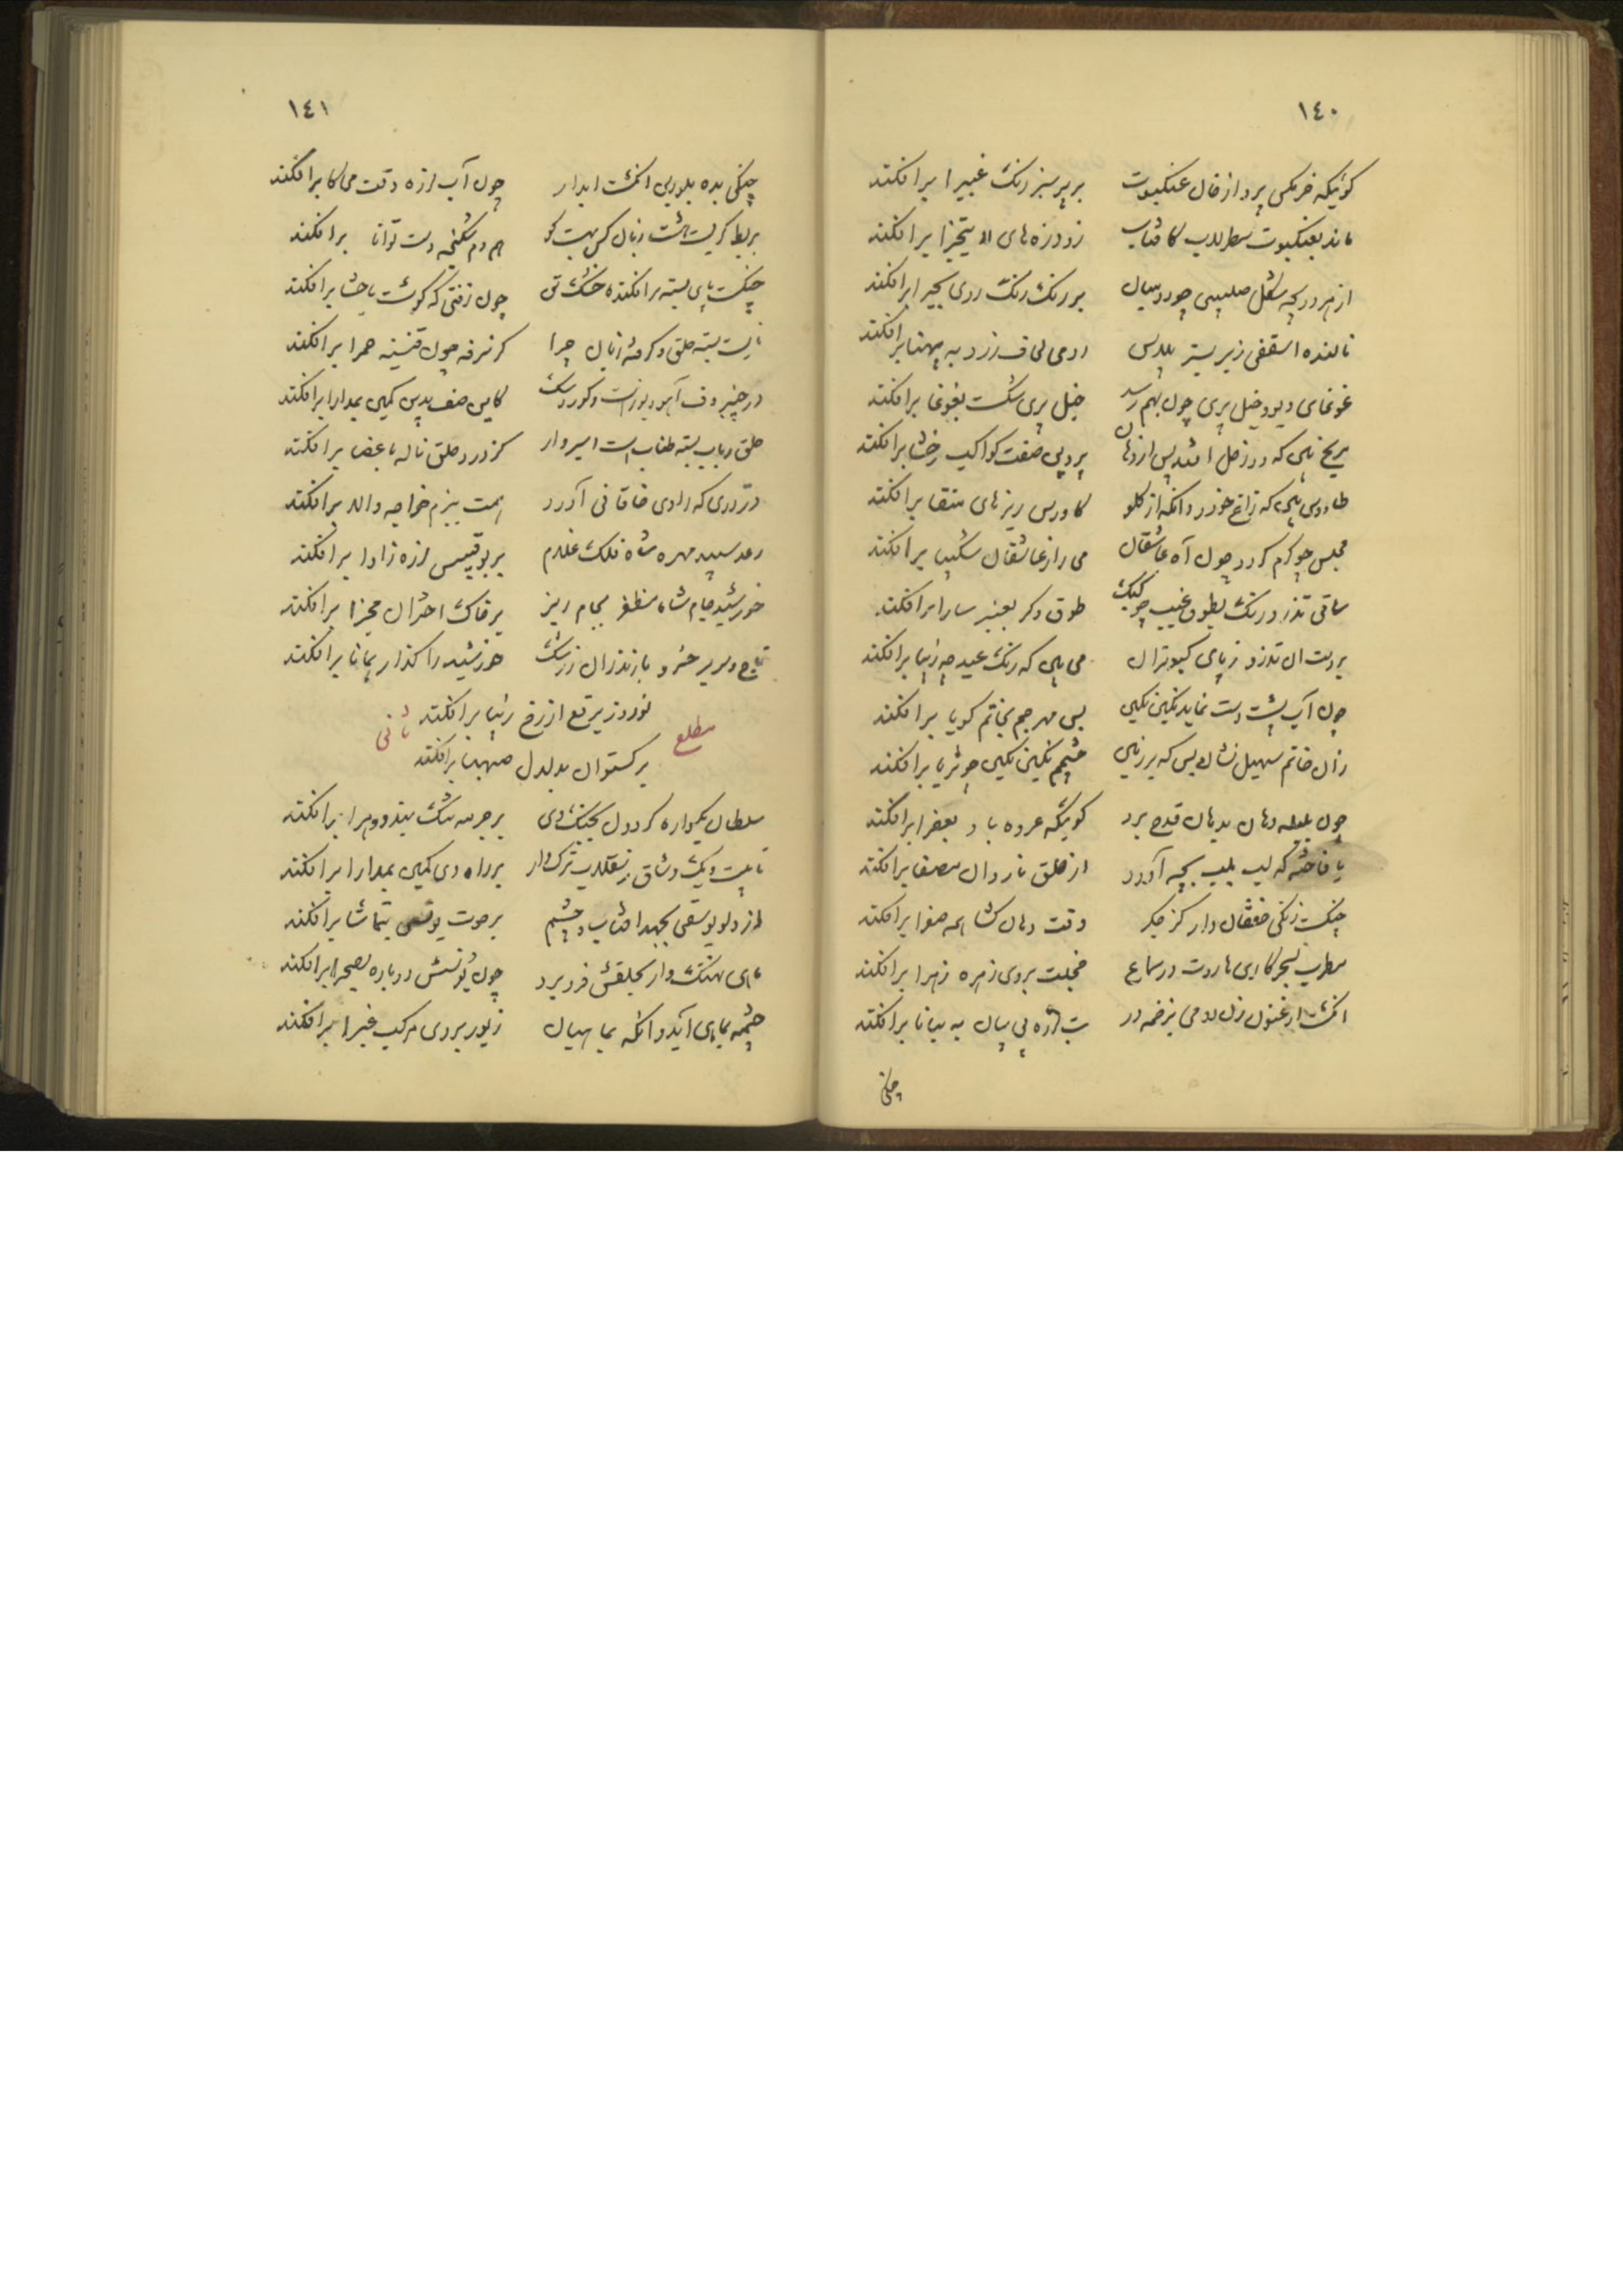 ١٤٠
گوئیکه خرمگس پرد از خان عنکبوت بر پر سبز رنگ غبیرا برافکند
ماند بعنکبوت سطرلاب کافتاب زو ذره‌های لایتجزا برافکند
از هر دریچه شکل صلیبی چو رومیان بر رنگ رنگ روی بحیرا برافکند
نالنده اسقفی زبر بستر پلاس رومی لحاف زرد به پهنا برافکند
غوغای دیو و خیل پری چون بهم رسد خیل پری شکست بغوغا برافکند
مریخ بین که در زحل افتد پس از دهان پروین صفت کواکب رخشا برافکند
طاووس بین که زاغ خورد وانگه از گلو گاورس ریزهای منقا برافکند
مجلس چو گرم گردد چون آه عاشقان می راز عاشقان شکیبا برافکند
ساقی تذرو رنگ بطوق غبب چو کبک طوق دگر بعنبر سارا برافکند
بر دست آن تذرو ز پای کبوتران می بین که رنگ عید چه زیبا برافکند
چون آب پشت دست نماید نگین نگین پس مهر جم بخاتم گویا برافکند
زان خاتم سهیل نشان بس که بر زمین چشمم نگین نگین چو ثریا برافکند
چون بلبله دهان بدهان قدح برد گوئیکه عروه باد بعفرا برافکند
یا فاخته که لب بلب بچه آورد از حلق ناردان مصفا برافکند
چنگست زنگی خفقان دار کز جگر وقت دهان گشا همه صفرا برافکند
مطرب بسحرکاری هاروت در سماع خجلت بروی زهره زهرا برافکند
انگشت ارغنون زن رومی بزخمه در تب لرزه پی پیان به بیانا برافکند
چنگی
١٤١
چنگی بده بلورین انگشت آبدار چون آب لرزه وقت می کا برافکند
بربط کریست هشت زبان کش بهشت گو هر دم شکنجه دست توانا برافکند
چنگست پای بسته سرافکنده خشک تن چون زفتی که گوشت باحشا برافکند
نایست بسته حلق و گرفته زبان چرا کز سرفه چون قنینه حمرا برافکند
در چنبر دف آهو و گوزن است و گور و سگ کاین صف بدین کمین بمدارا برافکند
حلق رباب بسته طناب است اسیروار کز درد حلق ناله باعضا برافکند
در دری که راوی خاقانی آورد همت ببزم خواجه والا برافکند
رعد سپید مهره شاه فلک غلام بر بوقبیس لرزه ز آوا برافکند
خورشید جام شاه مظفر بجام ریز بر خاک اختران مجزا برافکند
تاج و سریر خسرو مازندران ز رشک خورشید را گداز بمانا برافکند
مطلع ثانی
نوروز برقع از رخ زیبا برافکند
برگستوان بدلدل شهبا برافکند
سلطان یکسواره گردون بجنگ دی بر چرمه تنگ بندد و هرا برافکند
با بیست و یک وشاق ز سقلاب ترک وار بر راه دی کمین بمدارا برافکند
از دلو یوسفی بجهد آفتاب و چشم بر حوت یونسی بتماشا برافکند
ماهی نهنگ وار بحلقش فرو برد چون یونسش دوباره بصحرا برافکند
چشمه بماهی آید و آنگه بماهیان زیور بروی مرکب غبرا برافکند